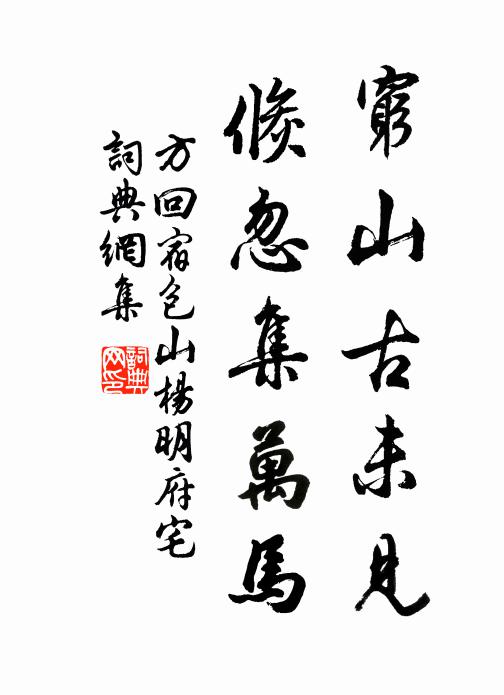 窮山古未見
倏忽集萬馬
方回宿包山楊明府宅
詞典網集
詞典网印